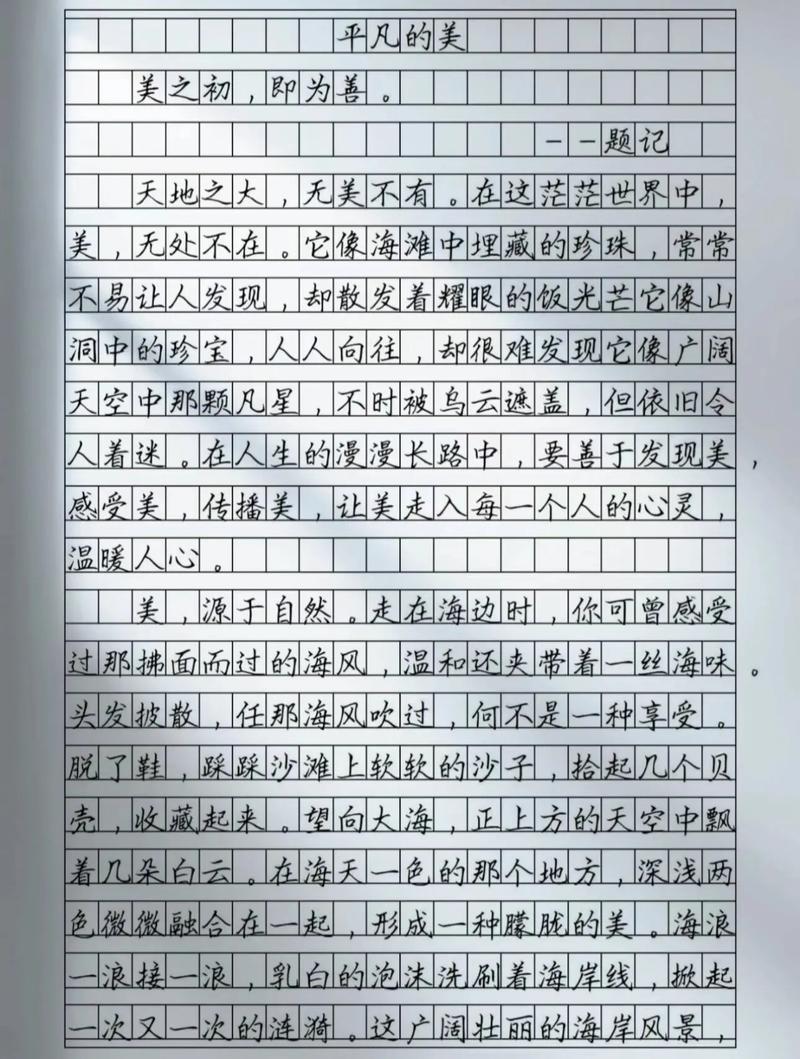 平凡的美
美之初，即为善。
——题记
天地之大，无美不有。在这茫茫世界中，
美，无处不在。它像海滩中埋藏的珍珠，常常
不易让人发现，却散发着耀眼的饭光芒它像山
洞中的珍宝，人人向往，却很难发现它像广阔
天空中那颗凡星，不时被乌云遮盖，但依旧令
人着迷。在人生的漫漫长路中，要善于发现美，
感受美，传播美，让美走入每一个人的心灵，
温暖人心。
美，源于自然。走在海边时，你可曾感受
过那拂面而过的海风，温和还夹带着一丝海味。
头发披散，任那海风吹过，何不是一种享受。
脱了鞋，踩踩沙滩上软软的沙子，拾起几个贝
壳，收藏起来。望向大海，正上方的天空中飘
着几朵白云。在海天一色的那个地方，深浅两
色微微融合在一起，形成一种朦胧的美。海浪
一浪接一浪，乳白的泡沫洗刷着海岸线，掀起
一次又一次的涟漪。这广阔壮丽的海岸风景，